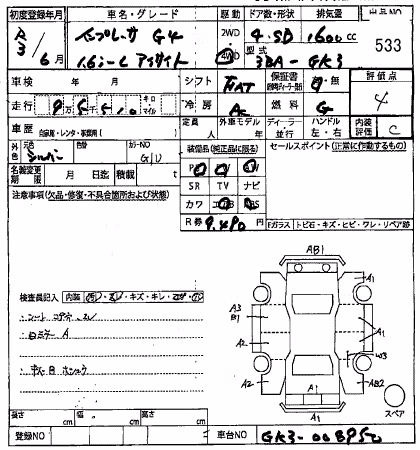 初度登録年月 車名・グレード 駆動 ドア数・形状 排気量 出品NO
R3/6月 インプレッサ G4 2WD 4 SD 1600cc 533
1.6i-L アイサイト 4WD 型式 3BA-GK3
車検 年 月 シフト FAT 保証書 有・無 評価点
走行 9万5千 キロ マイル 冷房 AC 燃料 G 4
車歴 自家用・レンタ・事業用( ) 定員 人 外車モデル 年 ディーラー・並行 ハンドル 左・右 内装評価 C
外色 元色 シルバー 色替 カラーNO G1U 装備品(純正品に限る) セールスポイント(正常に作動するもの)
名義変更期限 月 日迄 積載 t PS AW
注意事項(欠品・修復・不具合箇所および状態) SR TV ナビ
カワ エアB ABS
R券 9,490 円 Fガラス トビ石・キズ・ヒビ・ワレ・リペア跡
AB1
検査員記入 内装 A1 A1
A3
B1
A1
ロミラー A A2 W3
A2 A1 AB2
A1 スペア
長さ cm 幅 cm 高さ cm
登録NO 車台NO GK3-008950